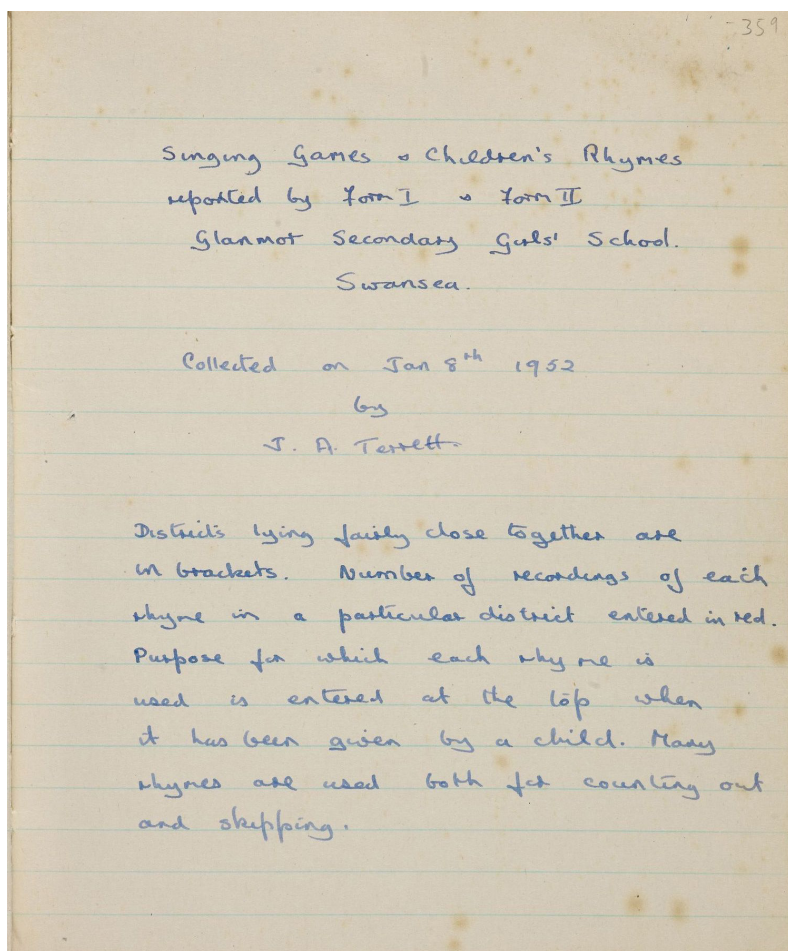 359
Singing Games & Children's Rhymes
reported by Form I & Form II
Glanmor Secondary Girls' School.
Swansea.
Collected on Jan 8th 1952
by
J. A. Terrett.
Districts lying fairly close together are
in brackets. Number of recordings of each
rhyme in a particular district entered in red.
Purpose for which each rhyme is
used is entered at the top when
it has been given by a child. Many
rhymes are used both for counting out
and skipping.